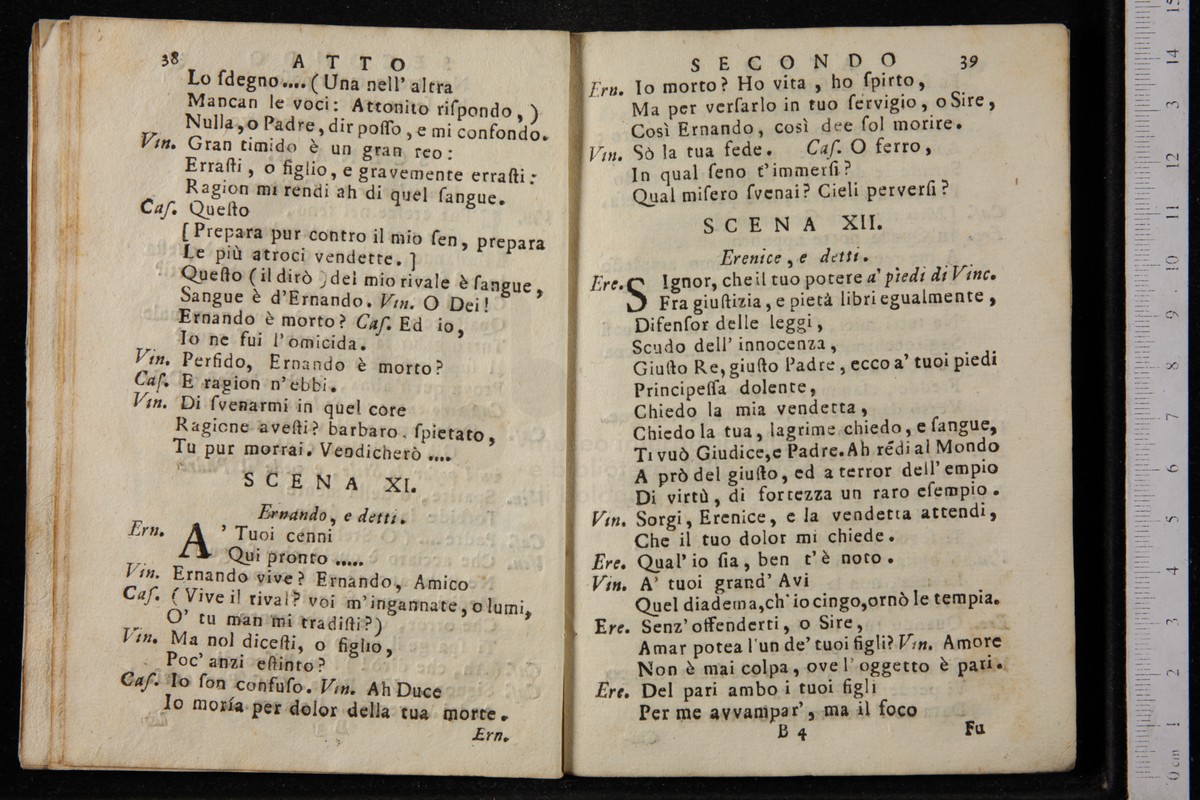 38 ATTO
Lo ſdegno.... (Una nell' altra
Mancan le voci: Attonito riſpondo, )
Nulla, o Padre, dir poſſo, e mi confondo.
Vin. Gran timido è un gran reo:
Erraſti, o figlio, e gravemente erraſti:
Ragion mi rendi ah di quel ſangue.
Caſ. Queſto
[Prepara pur contro il mio ſen, prepara
Le più atroci vendette. ]
Queſto (il dirò) del mio rivale è ſangue,
Sangue è d'Ernando. Vin. O Dei!
Ernando è morto? Caſ. Ed io,
Io ne fui l'omicida.
Vin. Perfido, Ernando è morto?
Caſ. E ragion n'ebbi.
Vin. Di ſvenarmi in quel core
Ragione aveſti? barbaro. ſpietato,
Tu pur morrai. Vendicherò ....
SCENA XI.
Ernando, e detti.
Ern. A' Tuoi cenni
Qui pronto .....
Vin. Ernando vive? Ernando, Amico
Caſ. (Vive il rival? voi m'ingannate, o lumi,
O' tu man mi tradiſti?)
Vin. Ma nol diceſti, o figlio,
Poc' anzi eſtinto?
Caſ. Io ſon confuſo. Vin. Ah Duce
Io moría per dolor della tua morte.
Ern.
SECONDO 39
Ern. Io morto? Ho vita, ho ſpirto,
Ma per verſarlo in tuo ſervigio, o Sire,
Così Ernando, così dee ſol morire.
Vin. Sò la tua fede. Caſ. O ferro,
In qual ſeno t'immerſi?
Qual miſero ſvenai? Cieli perverſi?
SCENA XII.
Erenice, e detti.
Ere. SIgnor, che il tuo potere a' piedi di Vinc.
Fra giuſtizia, e pietà libri egualmente,
Difenſor delle leggi,
Scudo dell' innocenza,
Giuſto Re, giuſto Padre, ecco a' tuoi piedi
Principeſſa dolente,
Chiedo la mia vendetta,
Chiedo la tua, lagrime chiedo, e ſangue,
Ti vuò Giudice, e Padre. Ah rēdi al Mondo
A prò del giuſto, ed a terror dell' empio
Di virtù, di fortezza un raro eſempio.
Vin. Sorgi, Erenice, e la vendetta attendi,
Che il tuo dolor mi chiede.
Ere. Qual' io ſia, ben t'è noto.
Vin. A' tuoi grand' Avi
Quel diadema, ch'io cingo, ornò le tempia.
Ere. Senz' offenderti, o Sire,
Amar potea l'un de' tuoi figli? Vin. Amore
Non è mai colpa, ove l'oggetto è pari.
Ere. Del pari ambo i tuoi figli
Per me avvampar', ma il foco
B 4 Fu